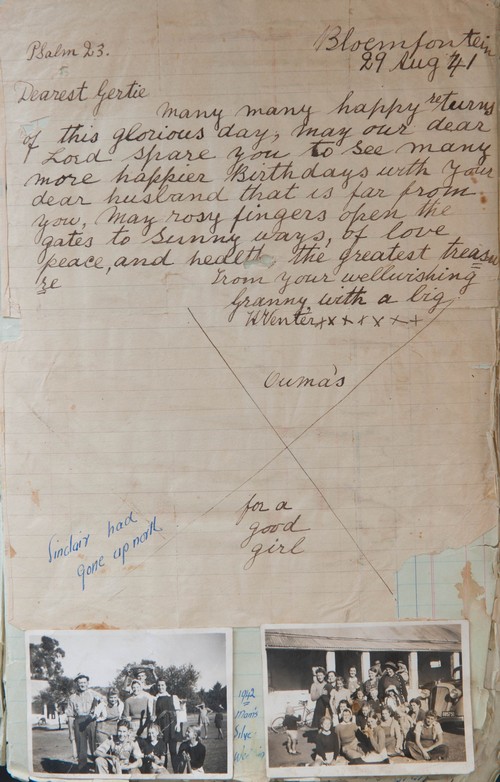 Psalm 23.
Bloemfontein
29 Aug 41
Dearest Gertie
many many happy returns
of this glorious day, may our dear
Lord spare you to see many
more happier Birthdays with your
dear husband that is far from
you, May rosy fingers open the
gates to Sunny ways, of love
peace, and health, the greatest treasu
re
From your wellwishing
Granny, with a big
H Venter x x x x x x x
Ouma's
for a
good
girl
Sinclair had
gone up north
1942
Mom's